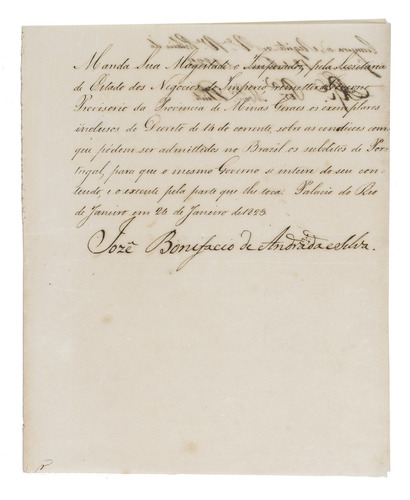 Manda Sua Magestade o Imperador, pela Secretaria
de Estado dos Negocios do Imperio remetter ao Governo
Provisorio da Provincia de Minas Geraes os exemplares
inclusos do Decreto de 14 do corrente, sobre as condições com
que podem ser admittidos no Brasil os subditos de Por-
tugal, para que o mesmo Governo si inteire do seu con-
teudo, e o execute pela parte que lhe toca. Palacio do Rio
de Janeiro em 24 de Janeiro de 1823
Jozé Bonifacio de Andrada e Silva.